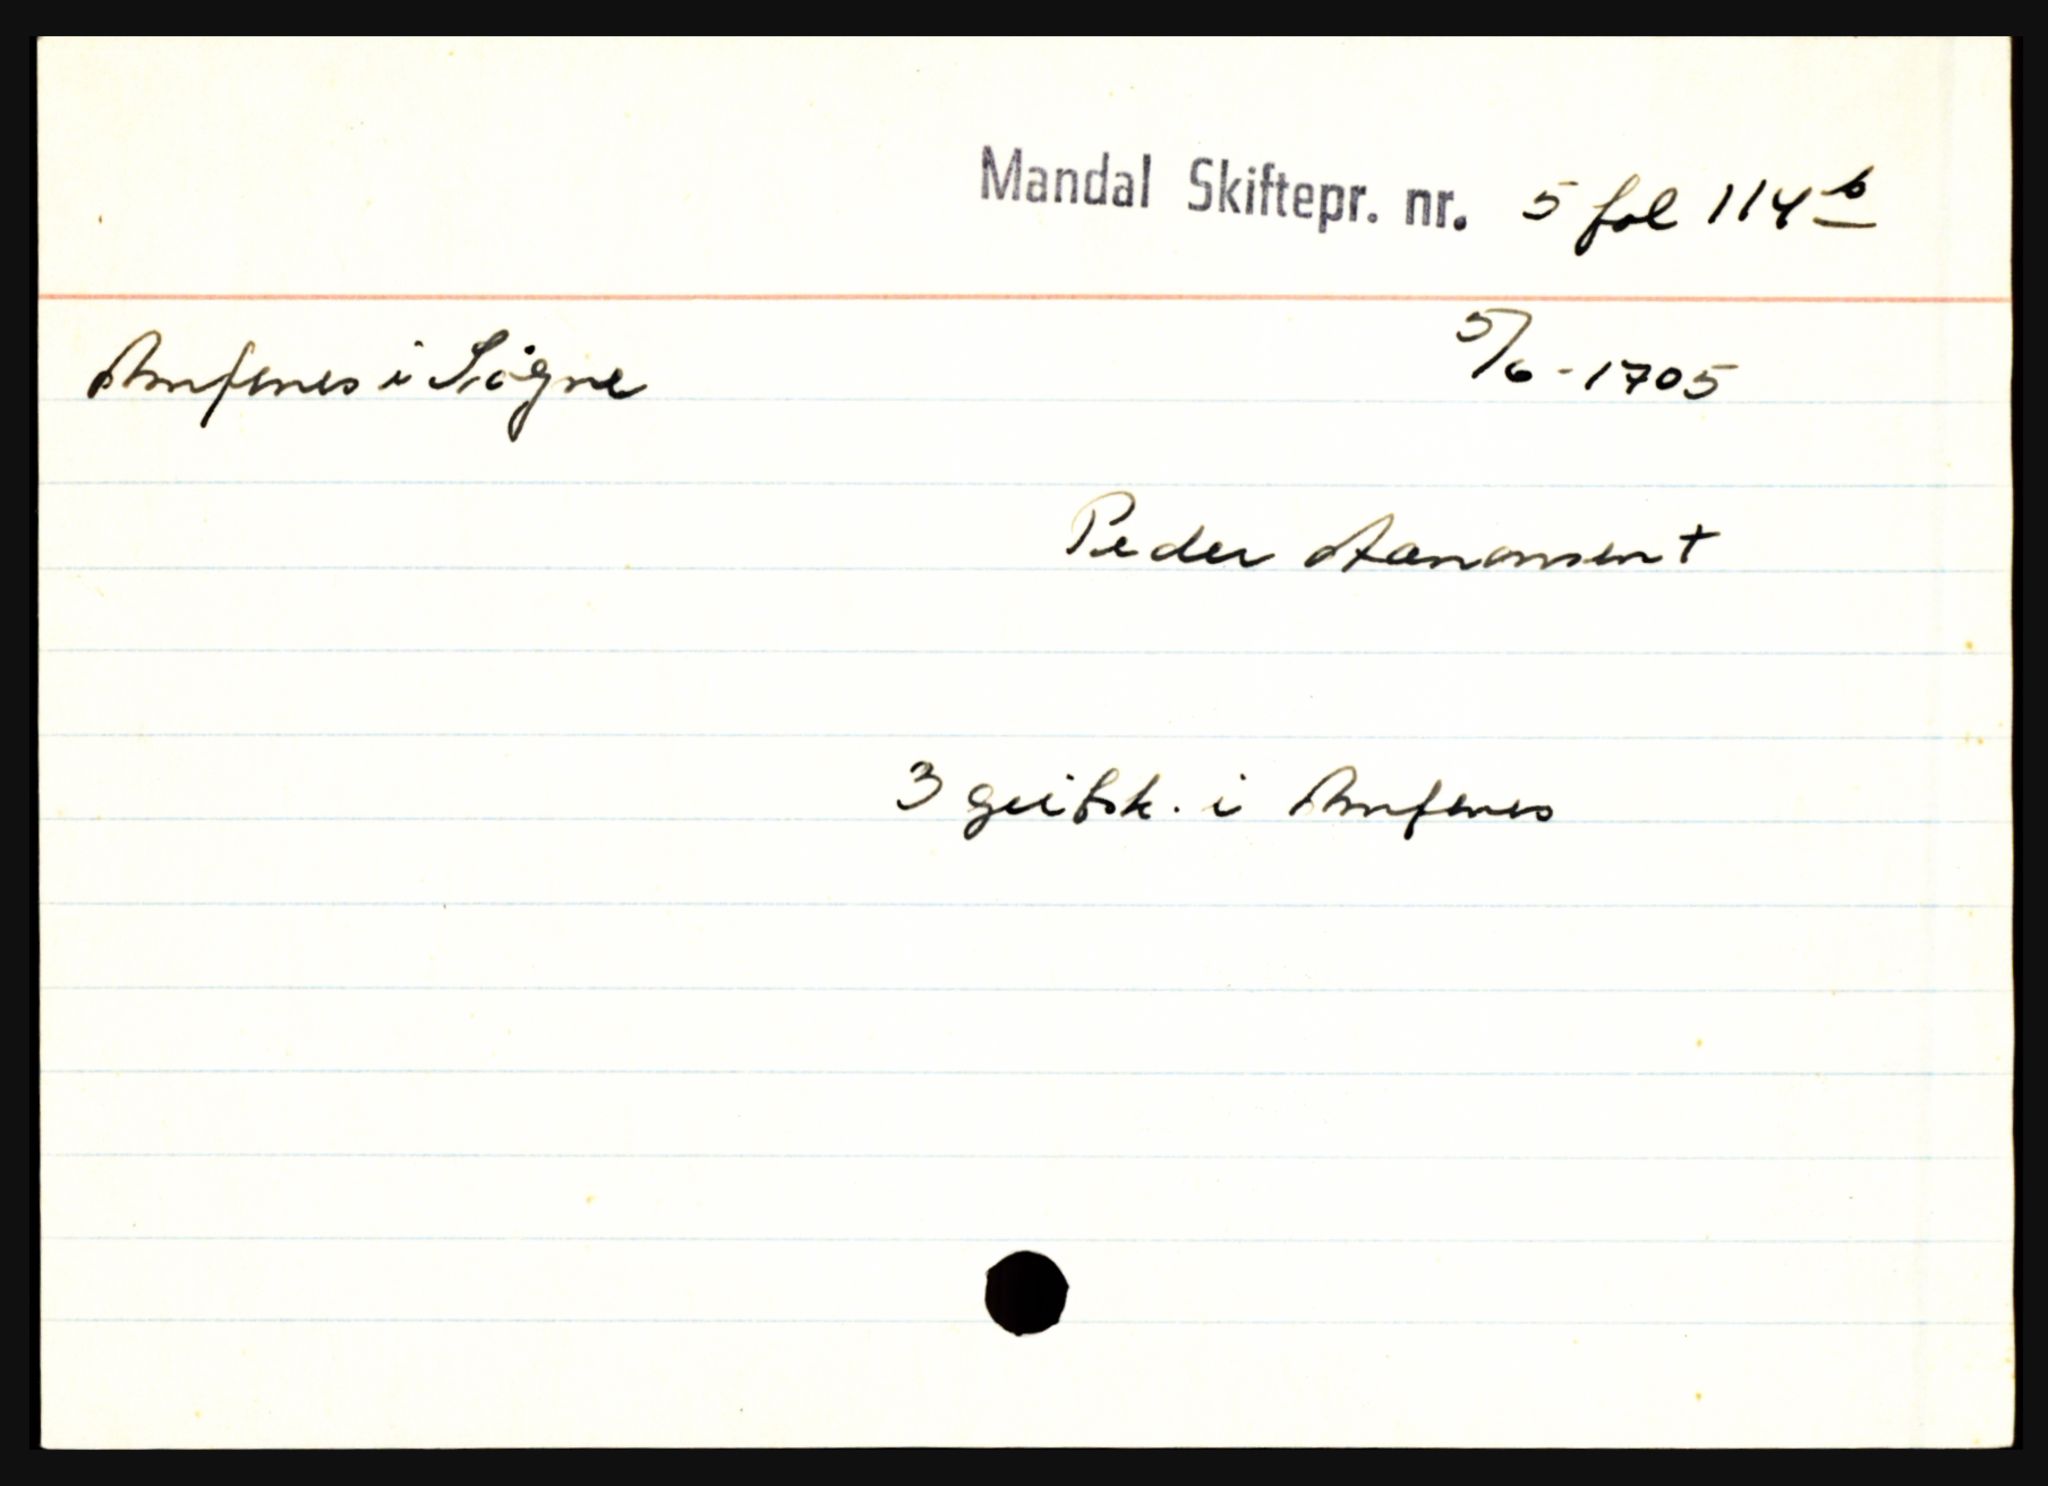 Mandal Skiftepr. nr. 5 fol 114 b
Amfenes i Søgne 5/6 - 1705
Peder Aanonsen +
3 geitsk. i Amfenes